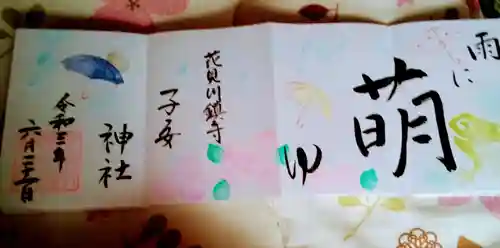 雨に
萌
ゆ
花見川鎮守
子安
神社
令和三年
六月二十二日